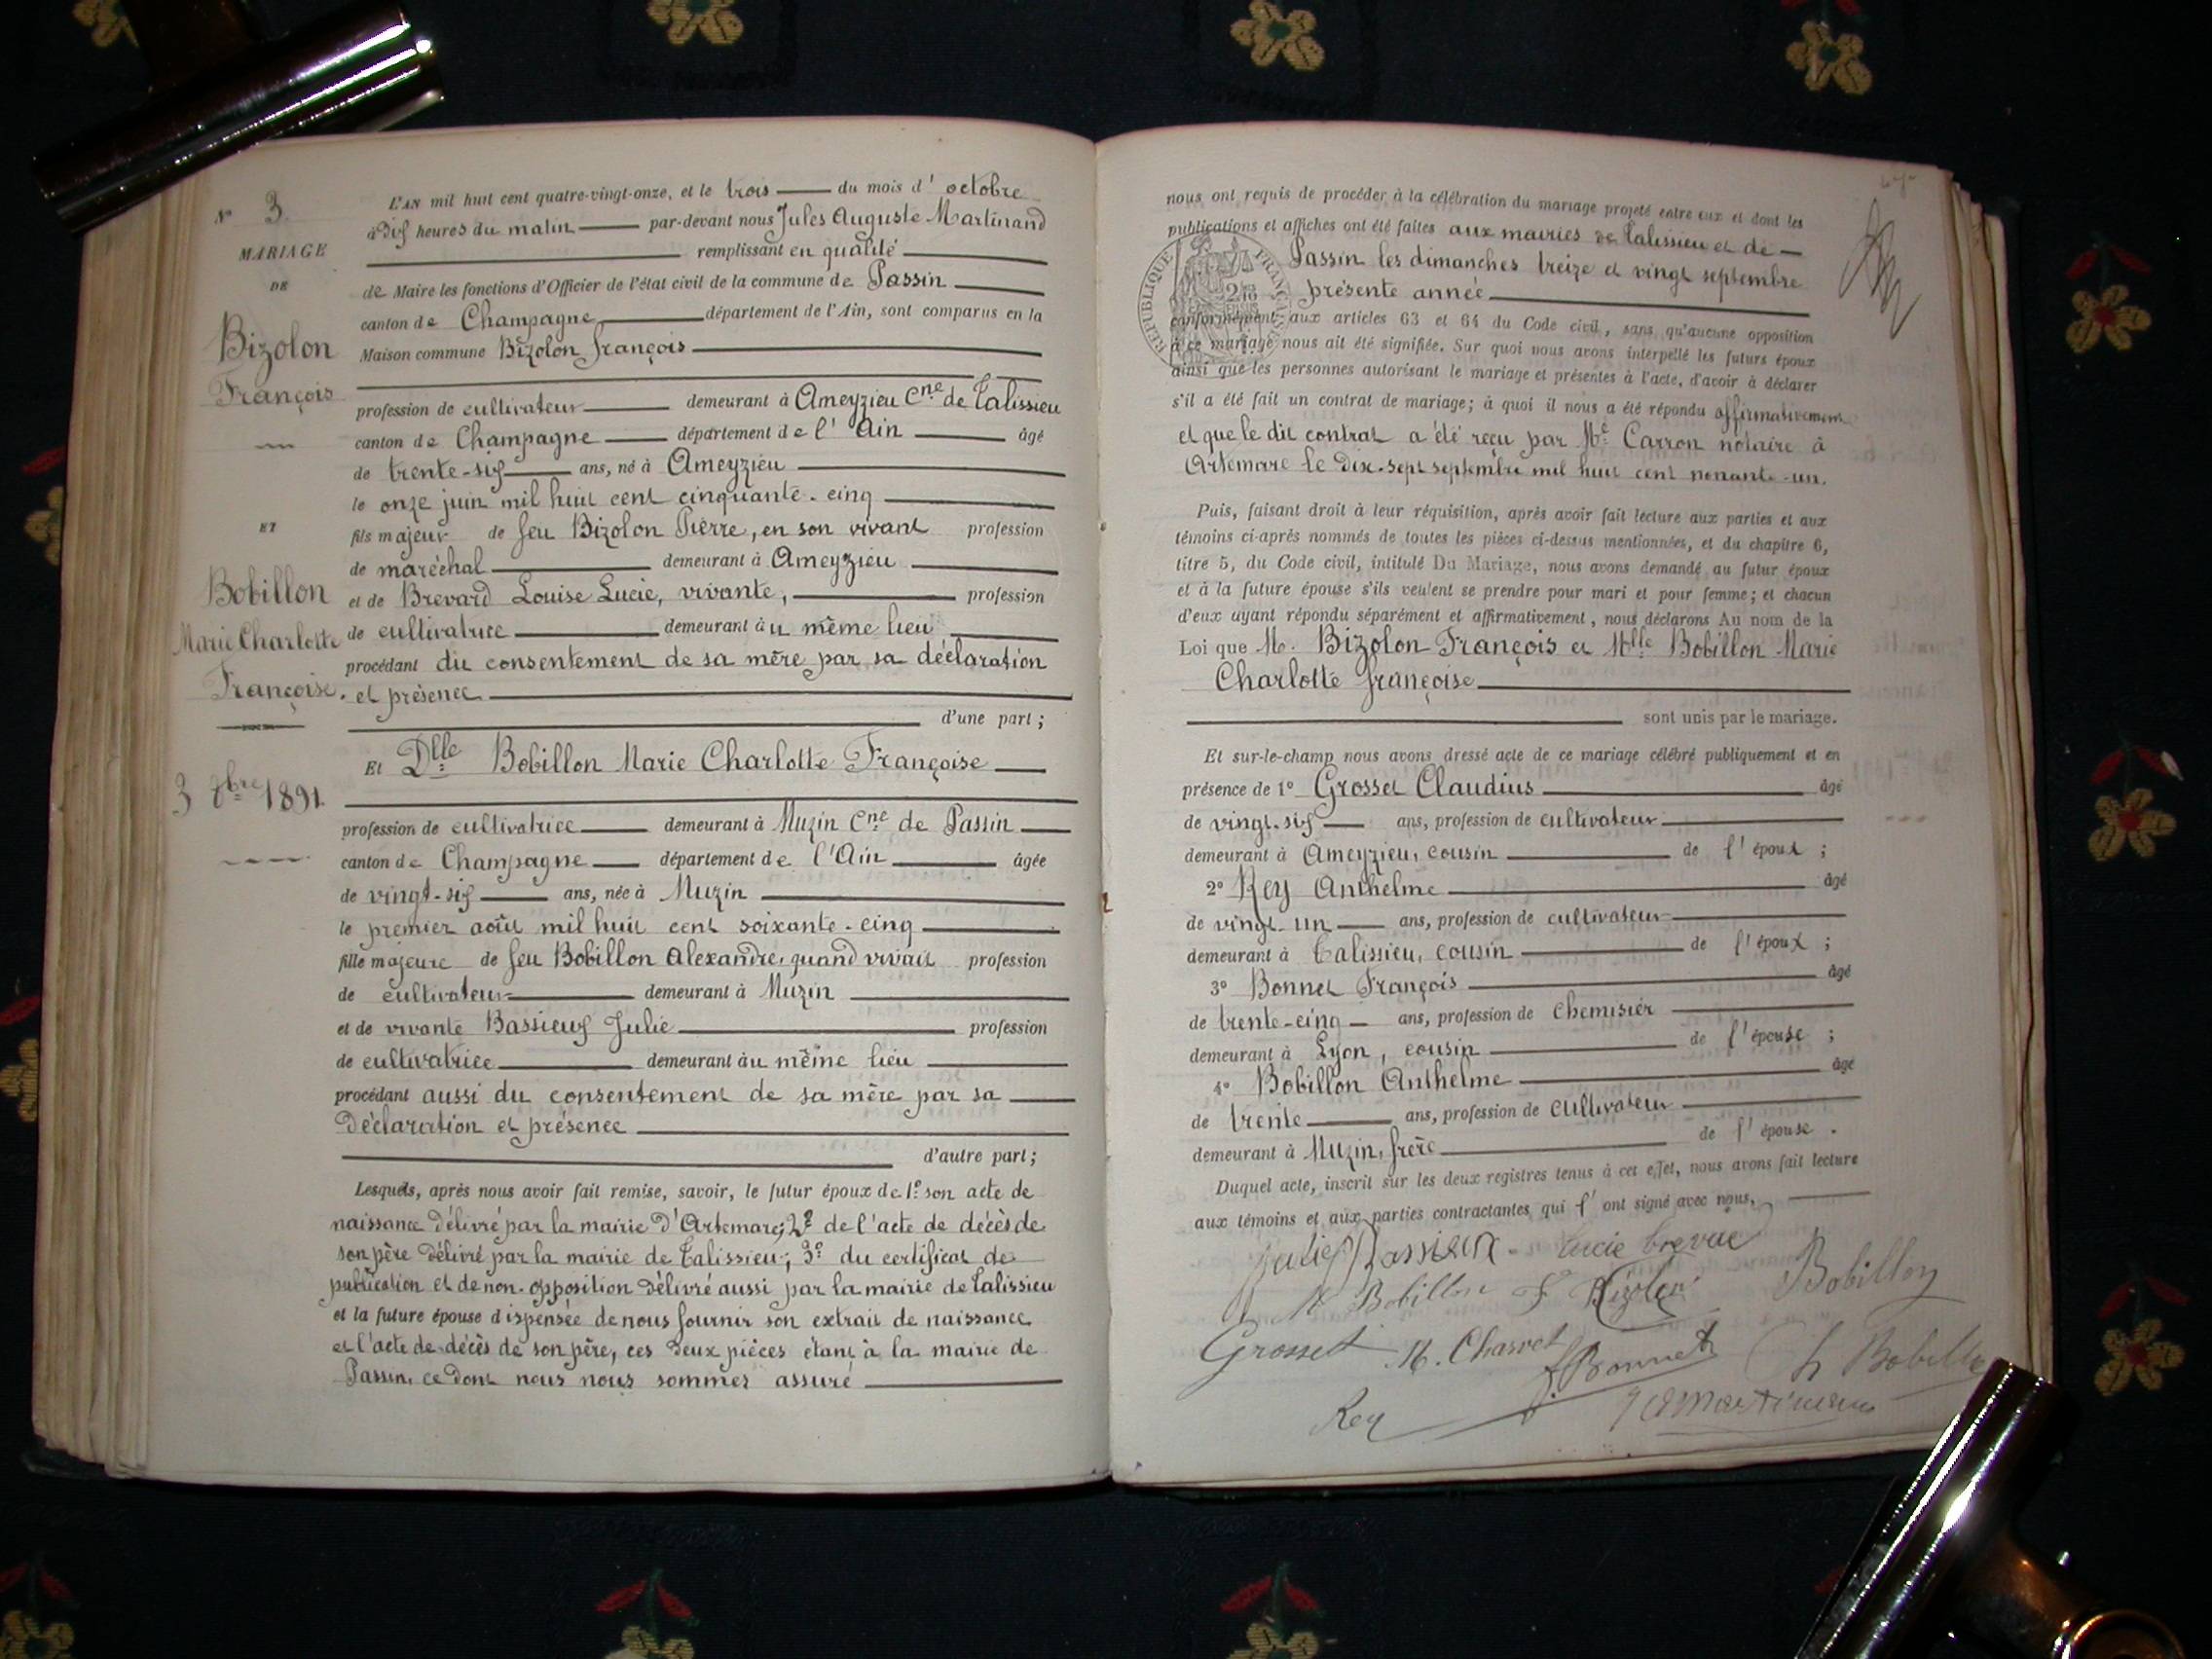 N° 3.
MARIAGE
DE
Bizolon
François
ET
Bobillon
Marie Charlotte
Françoise.
3 8bre 1891.
L'AN mil huit cent quatre-vingt-onze, et le trois du mois d'octobre
à dix heures du matin par-devant nous Jules Auguste Martinand
remplissant en qualité
de Maire les fonctions d'Officier de l'état civil de la commune de Passin
canton de Champagne, département de l'Ain, sont comparus en la
Maison commune Bizolon françois
profession de cultivateur demeurant à Ameyzieu Cne de Talissieu
canton de Champagne département de l'Ain âgé
de trente-six ans, né à Ameyzieu
le onze juin mil huit cent cinquante-cinq
fils majeur de feu Bizolon Pierre, en son vivant profession
de maréchal demeurant à Ameyzieu
et de Brevard Louise Lucie, vivante, profession
de cultivatrice demeurant àu même lieu
procédant du consentement de sa mère par sa déclaration
et présence
d'une part;
Et Dlle Bobillon Marie Charlotte Françoise
profession de cultivatrice demeurant à Muzin Cne de Passin
canton de Champagne département de l'Ain âgée
de vingt-six ans, née à Muzin
le premier août mil huit cent soixante-cinq
fille majeure de feu Bobillon Alexandre, quand vivait profession
de cultivateur demeurant à Muzin
et de vivante Bassieux Julie profession
de cultivatrice demeurant àu même lieu
procédant aussi du consentement de sa mère par sa
déclaration et présence
d'autre part;
Lesquels, après nous avoir fait remise, savoir, le futur époux de 1° son acte de
naissance délivré par la mairie d'Artemare; 2° de l'acte de décès de
son père délivré par la mairie de Talissieu; 3° du certificat de
publication et de non-opposition délivré aussi par la mairie de Talissieu
et la future épouse dispensée de nous fournir son extrait de naissance
et l'acte de décès de son père, ces deux pièces étant à la mairie de
Passin, ce dont nous nous sommes assuré
nous ont requis de procéder à la célébration du mariage projeté entre eux et dont les
publications et affiches ont été faites aux mairies de Talissieu et de
Passin les dimanches treize et vingt septembre
présente année
RÉPUBLIQUE FRANÇAISE
conformément aux articles 63 et 64 du Code civil, sans qu'aucune opposition
à ce mariage nous ait été signifiée. Sur quoi nous avons interpellé les futurs époux
ainsi que les personnes autorisant le mariage et présentes à l'acte, d'avoir à déclarer
s'il a été fait un contrat de mariage; à quoi il nous a été répondu affirmativement
et que le dit contrat a été reçu par Me Carron notaire à
Artemare le dix-sept septembre mil huit cent nonante-un.
Puis, faisant droit à leur réquisition, après avoir fait lecture aux parties et aux
témoins ci-après nommés de toutes les pièces ci-dessus mentionnées, et du chapitre 6,
titre 5, du Code civil, intitulé Du Mariage, nous avons demandé au futur époux
et à la future épouse s'ils veulent se prendre pour mari et pour femme; et chacun
d'eux ayant répondu séparément et affirmativement, nous déclarons Au nom de la
Loi que M. Bizolon François et Mlle Bobillon Marie
Charlotte françoise
sont unis par le mariage.
Et sur-le-champ nous avons dressé acte de ce mariage célébré publiquement et en
présence de 1° Grosset Claudius âgé
de vingt-six ans, profession de cultivateur
demeurant à Ameyzieu, cousin de l'époux;
2° Rey Anthelme âgé
de vingt-un ans, profession de cultivateur
demeurant à Talissieu, cousin de l'époux;
3° Bonnet François âgé
de trente-cinq ans, profession de chemisier
demeurant à Lyon, cousin de l'épouse;
4° Bobillon Anthelme âgé
de trente ans, profession de cultivateur
demeurant à Muzin, frère de l'épouse.
Duquel acte, inscrit sur les deux registres tenus à cet effet, nous avons fait lecture
aux témoins et aux parties contractantes qui l'ont signé avec nous.
julie Bassieux lucie brevar
Bobillon F Bizolon Bobillon
Grosset M. Charvet f Bonnet Bobillon
Rey J A Martinand